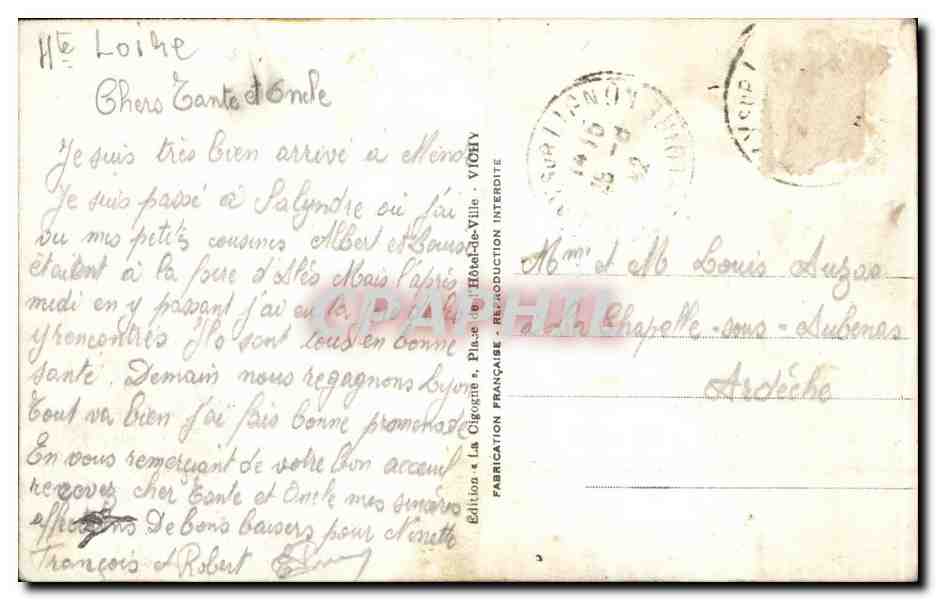 Hte Loire
Chers Tante et Oncle
Je suis très bien arrivé à
Je suis passé à Salyndre ou j'ai
vu mes petits cousins Albert et Louis
étaient à la foire d'Alès Mais l'après
midi en y passant j'ai eu la
y rencontrés Ils sont tous en bonne
santé. Demain nous regagnons Lyon
Tout va bien j'ai fais bonne promenade
En vous remerçiant de votre bon acceuil
recevez cher Tante et Oncle mes sincères
De bons baisers pour Ninette
François et Robert
Edition « La Cigogne », Place de l'Hôtel-de-Ville - VICHY
FABRICATION FRANÇAISE - REPRODUCTION INTERDITE
SUR LIGNON
Mme et M Louis Auzas
à La Chapelle-sous-Aubenas
Ardèche
CPAPHIL